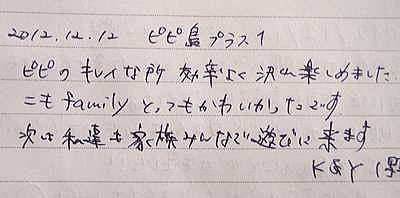 2012.12.12 ピピ島プラス1
ピピのキレイな所 効率よく沢山楽しめました
ニモfamilyとってもかわいかったです
次は私達も家族みんなで遊びに来ます
K&Y